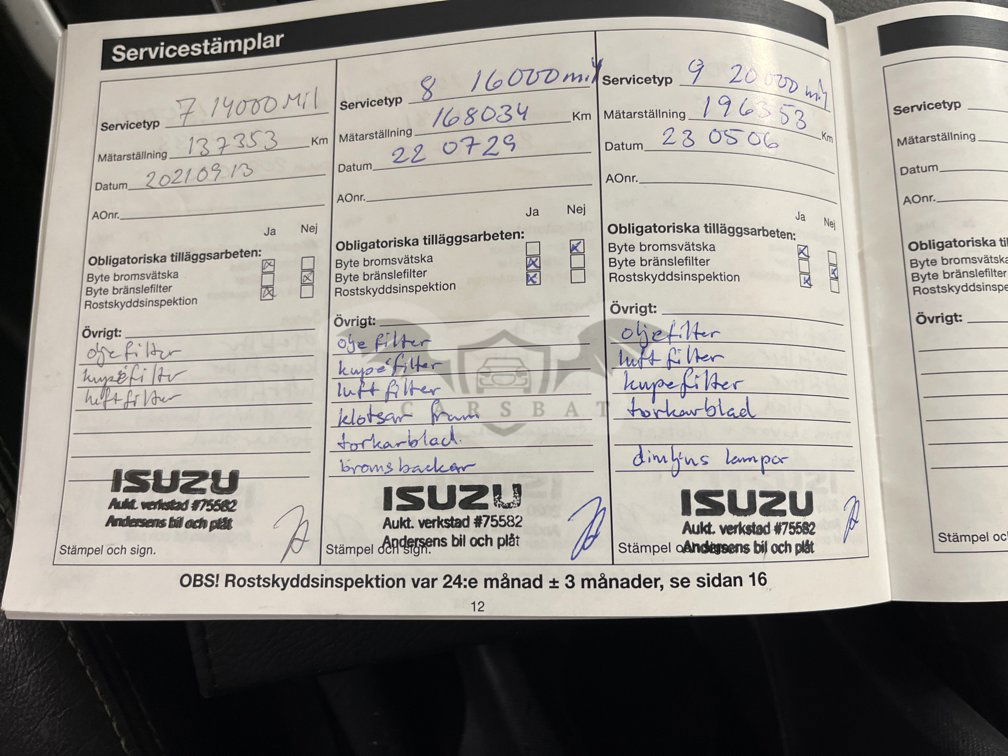 Servicestämplar
Servicetyp 7 14000 Mil
Mätarställning 137353 Km
Datum 20210913
AOnr.
Ja Nej
Obligatoriska tilläggsarbeten:
Byte bromsvätska
Byte bränslefilter
Rostskyddsinspektion
Övrigt:
oljefilter
kupéfilter
luftfilter
ISUZU
Aukt. verkstad #75582
Andersens bil och plåt
Stämpel och sign.
Servicetyp 8 16000 mil
Mätarställning 168034 Km
Datum 22 0729
AOnr.
Ja Nej
Obligatoriska tilläggsarbeten:
Byte bromsvätska
Byte bränslefilter
Rostskyddsinspektion
Övrigt:
olje filter
kupéfilter
luft filter
klotsar fram
torkarblad.
bromsbackar
ISUZU
Aukt. verkstad #75582
Andersens bil och plåt
Stämpel och sign.
Servicetyp 9 20000 mil
Mätarställning 196353 Km
Datum 23 0506
AOnr.
Ja Nej
Obligatoriska tilläggsarbeten:
Byte bromsvätska
Byte bränslefilter
Rostskyddsinspektion
Övrigt:
oljefilter
luft filter
kupefilter
torkarblad
dimljus lampor
ISUZU
Aukt. verkstad #75582
Andersens bil och plåt
Stämpel o
OBS! Rostskyddsinspektion var 24:e månad ± 3 månader, se sidan 16
12
CARSBAT
Servicetyp
Mätarställning
Datum
AOnr.
Obligatoriska til
Byte bromsvätska
Byte bränslefilter
Rostskyddsinspe
Övrigt:
Stämpel oc